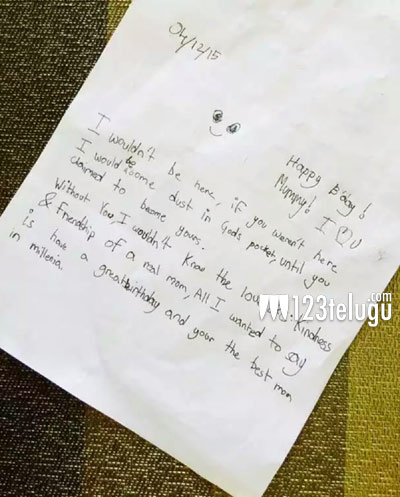 04/12/15
Happy B'day!
Mummy! I ♡ U
I wouldn't be here, if you weren't here
I would be some dust in Gods pocket, until you
claimed to become yours.
Without You I wouldn't know the love
Kindness
& Friendship of a real mom, All I wanted to say
is have a great birthday and your the best mom
in millenia
123telugu.com